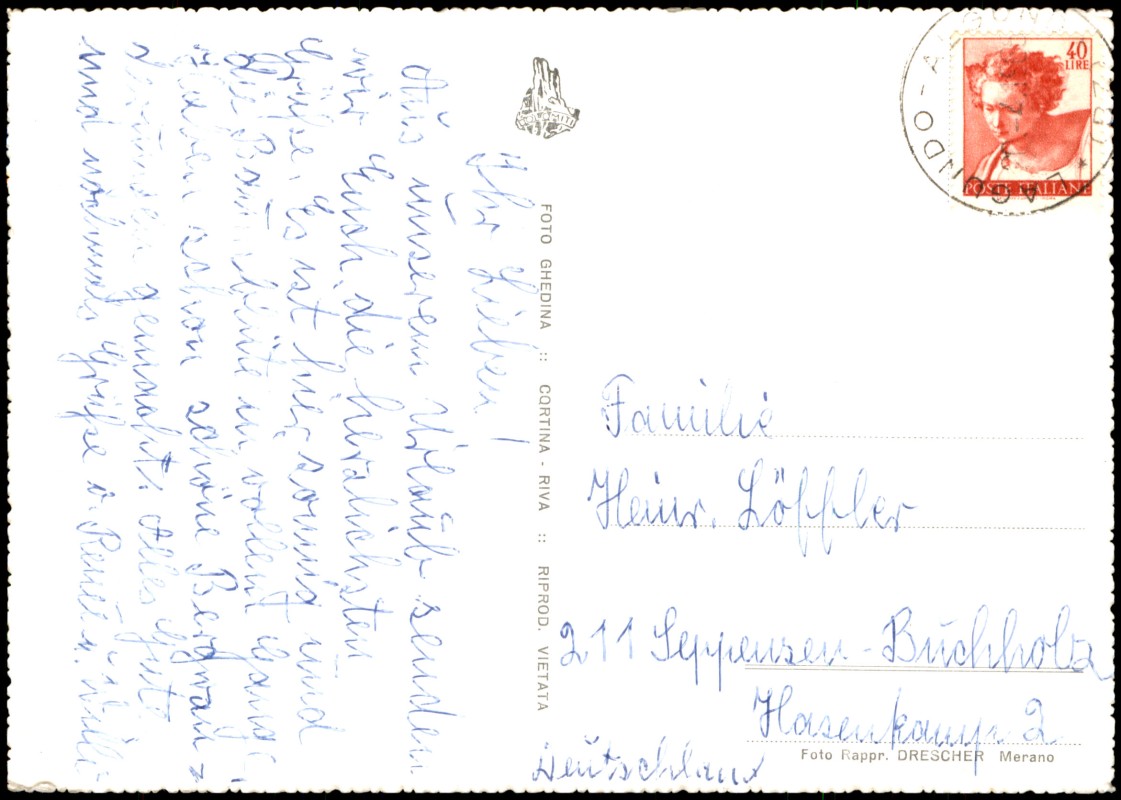 Ihr Lieben!
Aus unserem Urlaub senden
wir Euch die herzlichsten
Grüße. Es ist hier sonnig und
die Baumblüte in vollem Gang.
Haben schon schöne Bergwan-
gemacht. Alles Gute
und nochmals Grüße v. Renée u. Willi
FOTO GHEDINA :: CORTINA - RIVA :: RIPROD. VIETATA
40
LIRE
POSTE ITALIANE
LAGUNDO
Familie
Heinr. Löffler
211 Seppensen - Buchholz
Hasenkamp 2
Deutschland
Foto Rappr. DRESCHER Merano